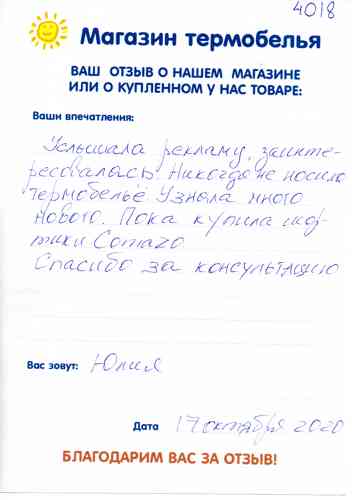 4018
Магазин термобелья
ВАШ ОТЗЫВ О НАШЕМ МАГАЗИНЕ
ИЛИ О КУПЛЕННОМ У НАС ТОВАРЕ:
Ваши впечатления:
Услышала рекламу, заинте-
ресовалась. Никогда не носила
термобельё. Узнала много
нового. Пока купила шор-
тики Comazo
Спасибо за консультацию
Вас зовут: Юлия
Дата 17 октября 2020
БЛАГОДАРИМ ВАС ЗА ОТЗЫВ!